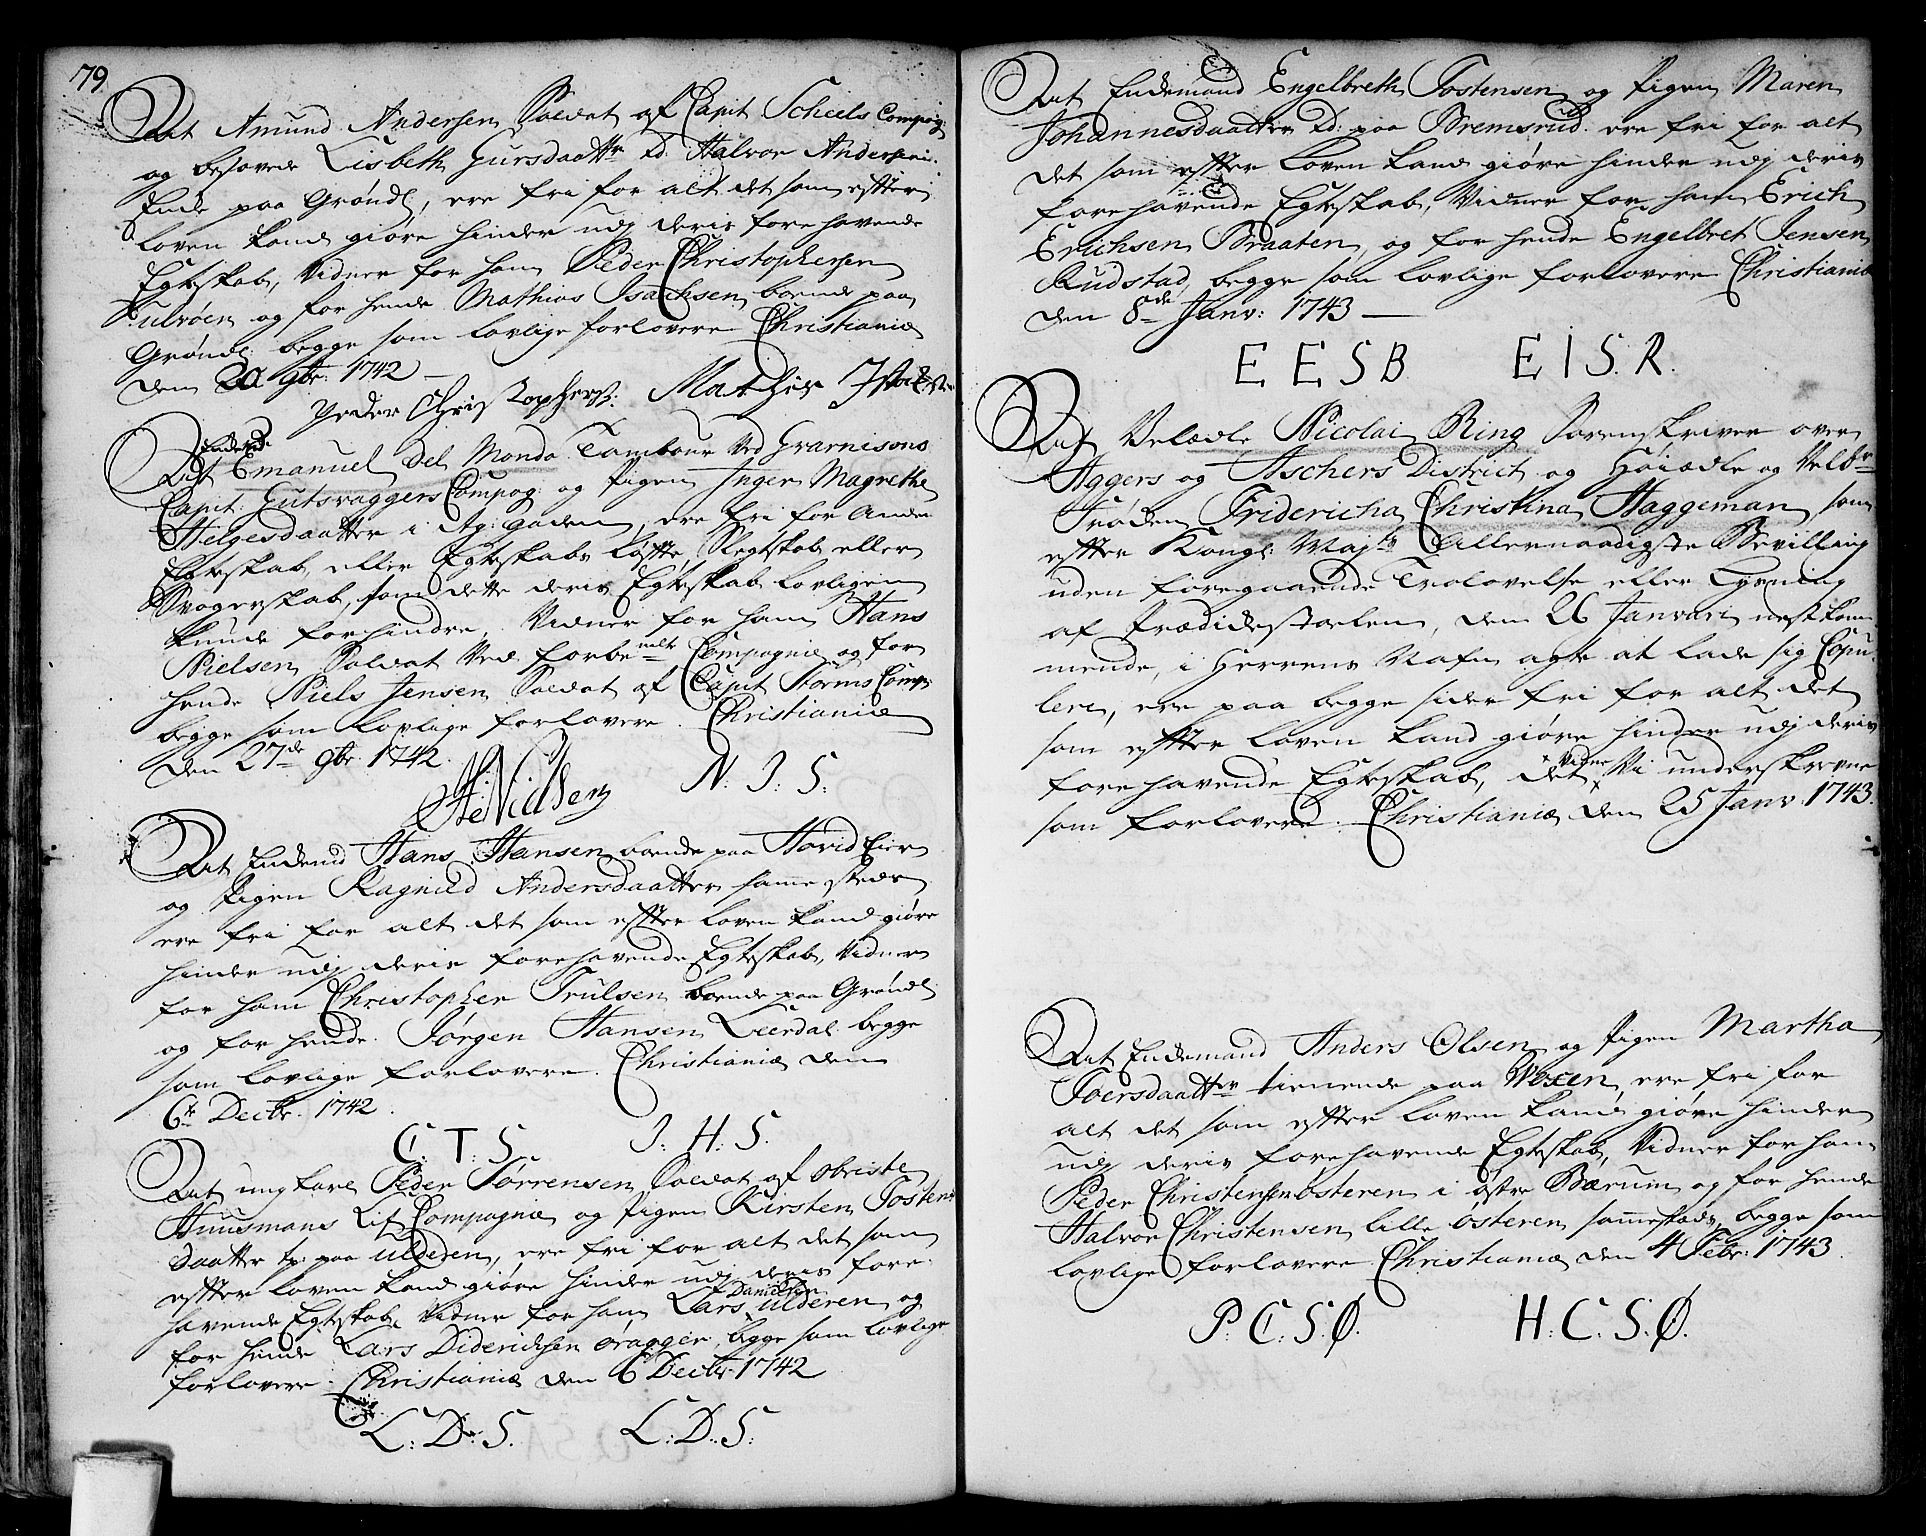 79
At Amund Andersen Soldat af Capit Scheels Compag:
og besovede Lisbeth Gursdaattr Ed. Halvor Andersens
Enke paa Grønd, ere fri for alt det som effter
loven kand giøre hinder udj deris forehavende
Egteskab, Vidner for ham Peder Christophersen
Fulrøen og for hende Mathias Isachsen boende paa
Grønd: begge som lovlige forlovere Christianiæ
den 20 9br. 1742
Peder Christophers: Mathis Isachsen
Enkemd
At Emanuel del Monda Tambour ved Guarnisons
Capit: Gutsvaggers Compag: og Pigen Inger Magrethe
Helgesdaatter i Ag: gaden, ere fri for Anden
Egteskab, eller Egteskabs Løffte, Slegtskab eller
Svogerskab, som dette deris Egteskab lovligen
kunde forhindre, Vidner for ham Hans
Nielsen Soldat ved forbemelte Compagnie og for
hende Niels Jensen Soldat af Capit Storms Comp:
begge som lovlige forlovere. Christianiæ
den 27de 9br. 1742.
H: Nielsen N: I: S:
At Enkemd Hans Hansen boende paa Hovid Eier
og Pigen Ragnild Andersdaatter samme steds
ere fri for alt det som effter loven kand giøre
hinder udj deris forehavende Egteskab, Vidner
for ham Christopher Trulsen boende paa Grønd:
og for hende. Jørgen Hansen Leerdal begge
som lovlige forlovere. Christianiæ den
6te Decbr. 1742.
C: T: S. I: H: S.
At ung karl Peder Sørrensen Soldat af Obriste
Huusmans Lif Compagnie og Pigen Kirsten Tostens
daatter tr: paa Ulderen, ere fri for alt det som
effter loven kand giøre hinder udj deris fore-
havende Egteskab, Vidner for ham Lars Danielsen Ulderen og
for hende Lars Diderichsen Oragger, begge som lovlige
forlovere. Christianiæ den 6 Decbr 1742
L: D: S. L: D: S:
At Enkemand Engelbreth Tostensen og Pigen Maren
Johannesdaatter Ed: paa Bremsrud. ere fri for alt
det som effter loven kand giøre hinder udj deris
forehavende Egteskab, Vidner for ham Erich
Erichsen Braaten, og for hende Engelbret Jensen
Rudstad, begge som lovlige forlovere Christianiæ
den 8de Janv: 1743
E E S B E I S. R.
At Velædle Nicolai Ring Sorenskriver over
Aggers og Aschers District og Høiædle og Velbr
Frøden Fridericha Christina Haggeman som
effter Kongl: Maj:ts Allernaadigste Bevilling
uden foregaaende Trolovelse eller Lysning
af Prædikestoelen, den 26 Januari nestkom-
mende, i Herrens Nafn agte at lade sig Copu-
lere, ere paa begge sider fri for alt det
som effter loven kand giøre hinder udj deris
forehavende Egteskab, det Vidner Vi underskrevne
som forlovere. Christianiæ den 25 Janv. 1743.
At Enkemand Anders Olsen og Pigen Martha
Toersdaattr tienende paa Woxen, ere fri for
alt det som effter loven kand giøre hinder
udj deris forehavende Egteskab, Vidner for ham
Peder Christensen østeren i østre Bærum og for hende
Halvor Christensen lille østeren sammesteds, begge som
lovlige forlovere Christianiæ den 4 Febr: 1743.
P: C: S. Ø. H: C. S. Ø.